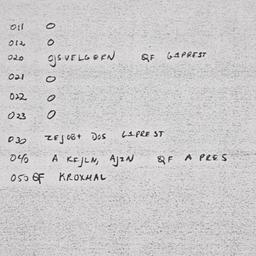 011 0
012 0
020 OJSVELGOEN QF G1PREST
021 0
022 0
023 0
030 ZEJOBT DOS G1PREST
040 A KEJLN, AJZN QF A PRES
050 QF KROXMAL